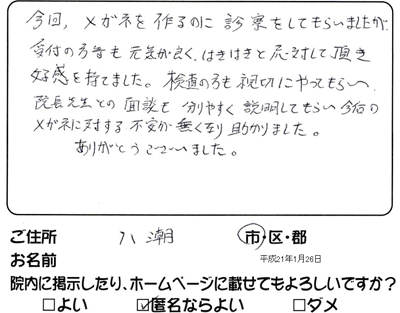 今回、メガネを作るのに診察をしてもらいましたが、
受付の方皆も元気が良く、はきはきと応対して頂き
好感を持てました。検査の方も親切にやってもらい、
院長先生との面談も分りやすく説明してもらい今后の
メガネに対する不安が無くなり助かりました。
ありがとうございました。
ご住所 八潮 市・区・郡
お名前 平成21年1月26日
院内に掲示したり、ホームページに載せてもよろしいですか?
□よい ☑匿名ならよい □ダメ